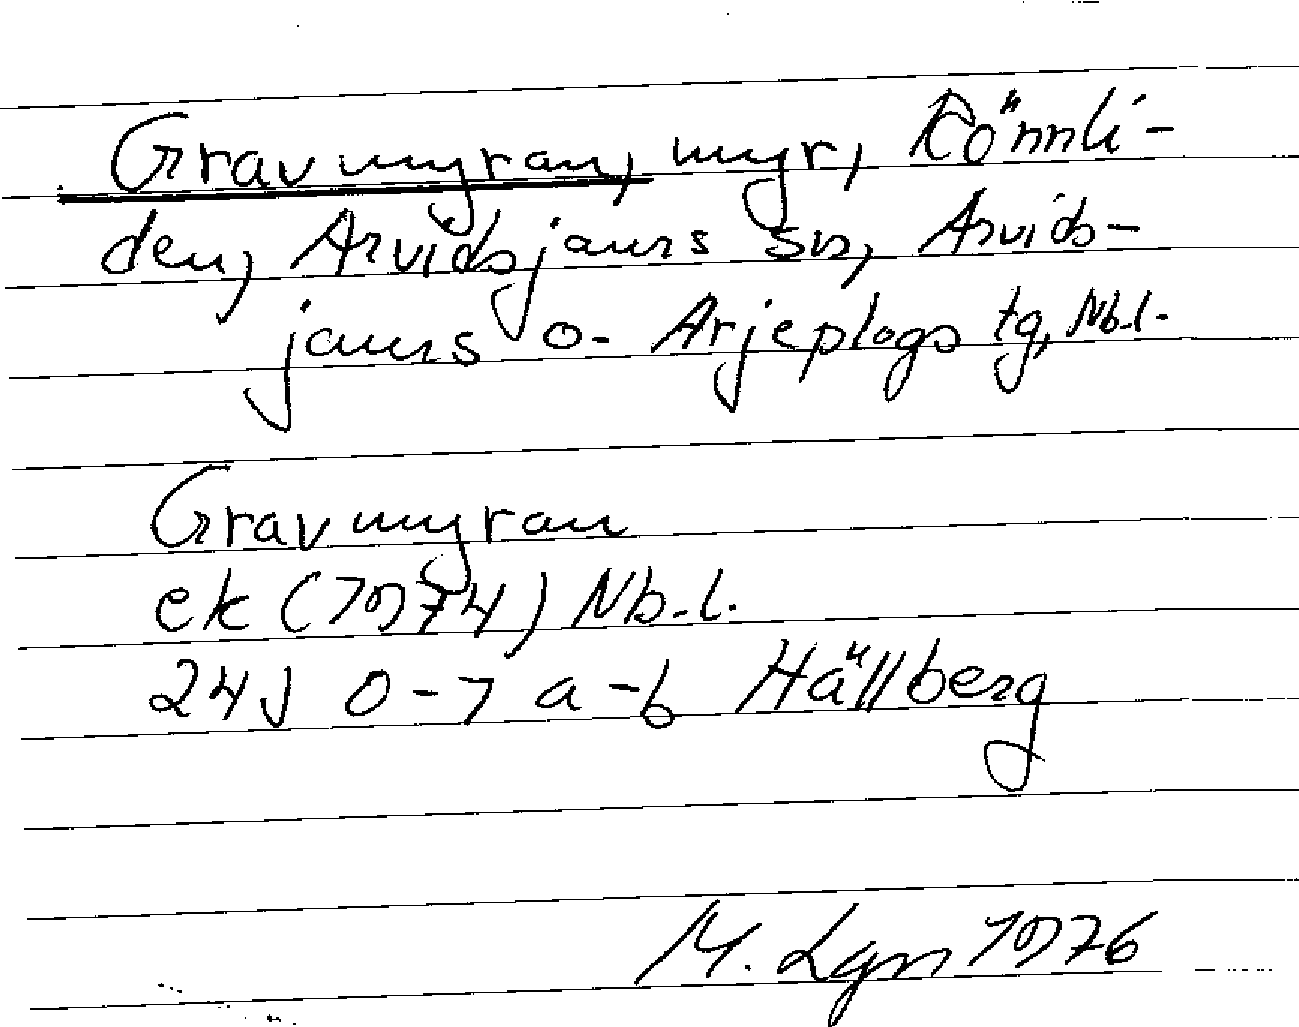 Gravmyran, myr, Rönnli-
den, Arvidsjaurs sn, Arvids-
jaurs o. Arjeplogs tg, Nb.l.
Gravmyran
ek (1974) Nb.l.
24J 0-1 a-b Hällberg
M. Lgn 1976